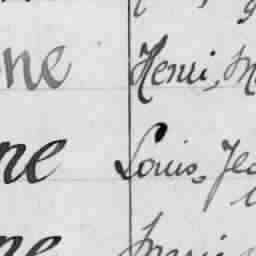 ne Henri, M
ne Louis, Jea
ne Marie